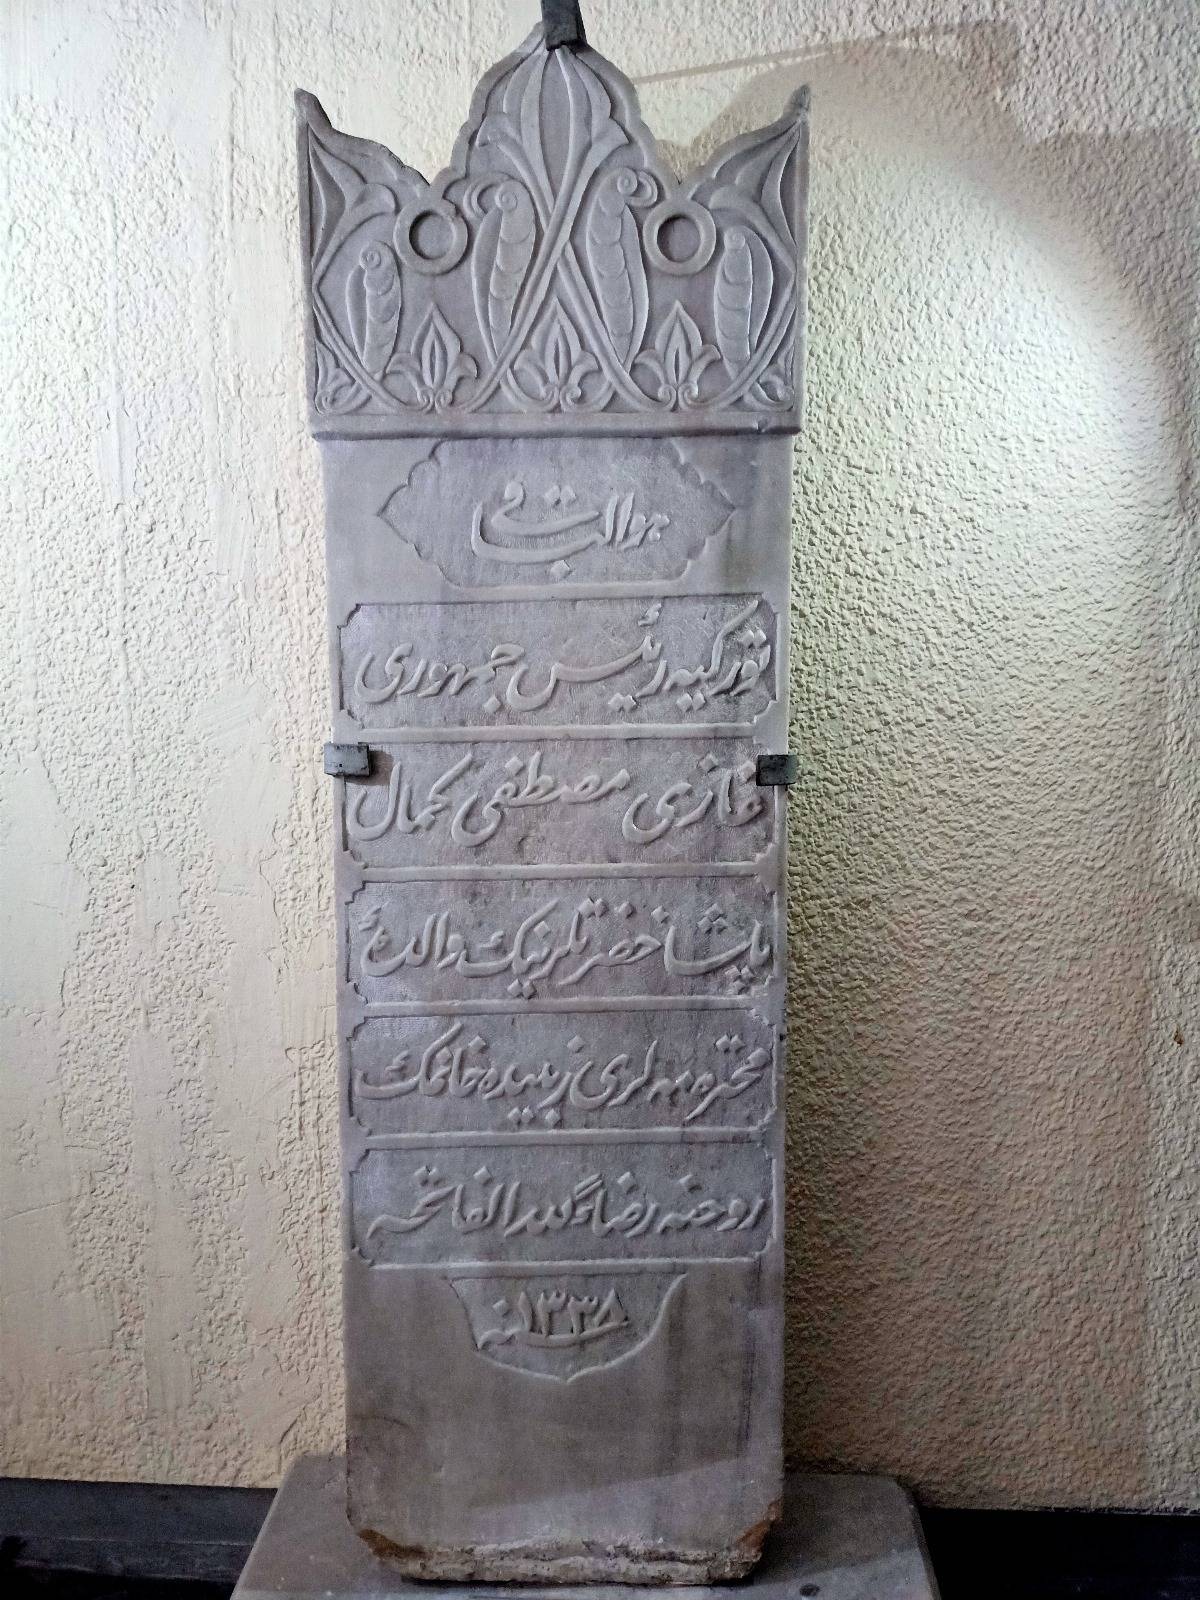 هو الباقی
تورکیه رئیس جمهوری
غازی مصطفی کمال
پاشا حضرتلرینک والدهٔ
محترمه لری زبیده خانمک
روحنه رضاءً لله الفاتحه
سنه ١٣٣٨